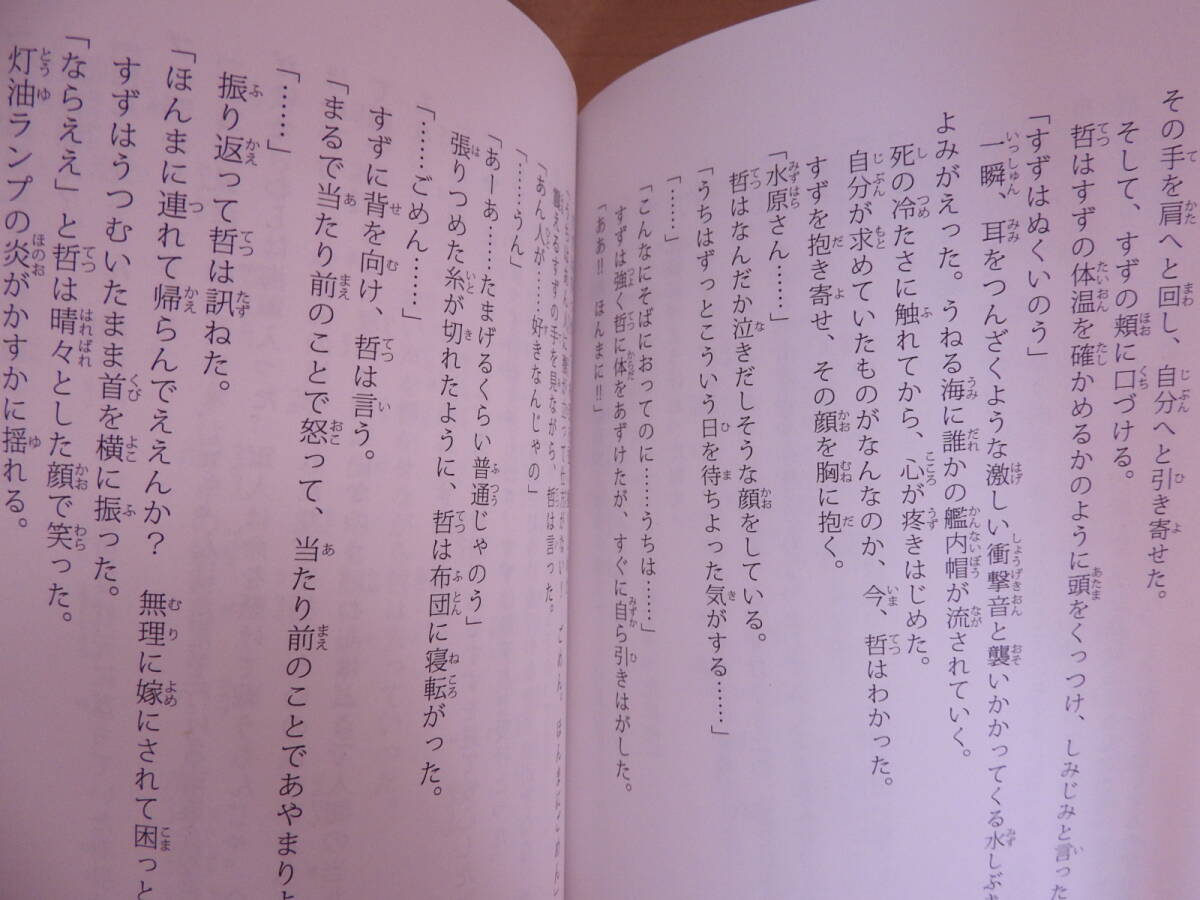 その手を肩へと回し、自分へと引き寄せた。
そして、すずの頬に口づける。
哲はすずの体温を確かめるかのように頭をくっつけ、しみじみと言った
「すずはぬくいのう」
一瞬、耳をつんざくような激しい衝撃音と襲いかかってくる水しぶ
よみがえった。うねる海に誰かの艦内帽が流されていく。
死の冷たさに触れてから、心が疼きはじめた。
自分が求めていたものがなんなのか、今、哲はわかった。
すずを抱き寄せ、その顔を胸に抱く。
「水原さん……」
哲はなんだか泣きだしそうな顔をしている。
「うちはずっとこういう日を待ちよった気がする……」
「……」
「こんなにそばにおってのに……うちは……」
すずは強く哲に体をあずけたが、すぐに自ら引きはがした。
「ああ!! ほんまに!!」
えるすずの手を見ながら、哲は言った。
「あん人が……好きなんじゃの」
「……うん」
「あーあ……たまげるくらい普通じゃのう」
張りつめた糸が切れたように、哲は布団に寝転がった。
「……ごめん……」
すずに背を向け、哲は言う。
「まるで当たり前のことで怒って、当たり前のことであやまりよ
「……」
振り返って哲は訊ねた。
「ほんまに連れて帰らんでええんか？　無理に嫁にされて困っと
すずはうつむいたまま首を横に振った。
「ならええ」と哲は晴々とした顔で笑った。
灯油ランプの炎がかすかに揺れる。